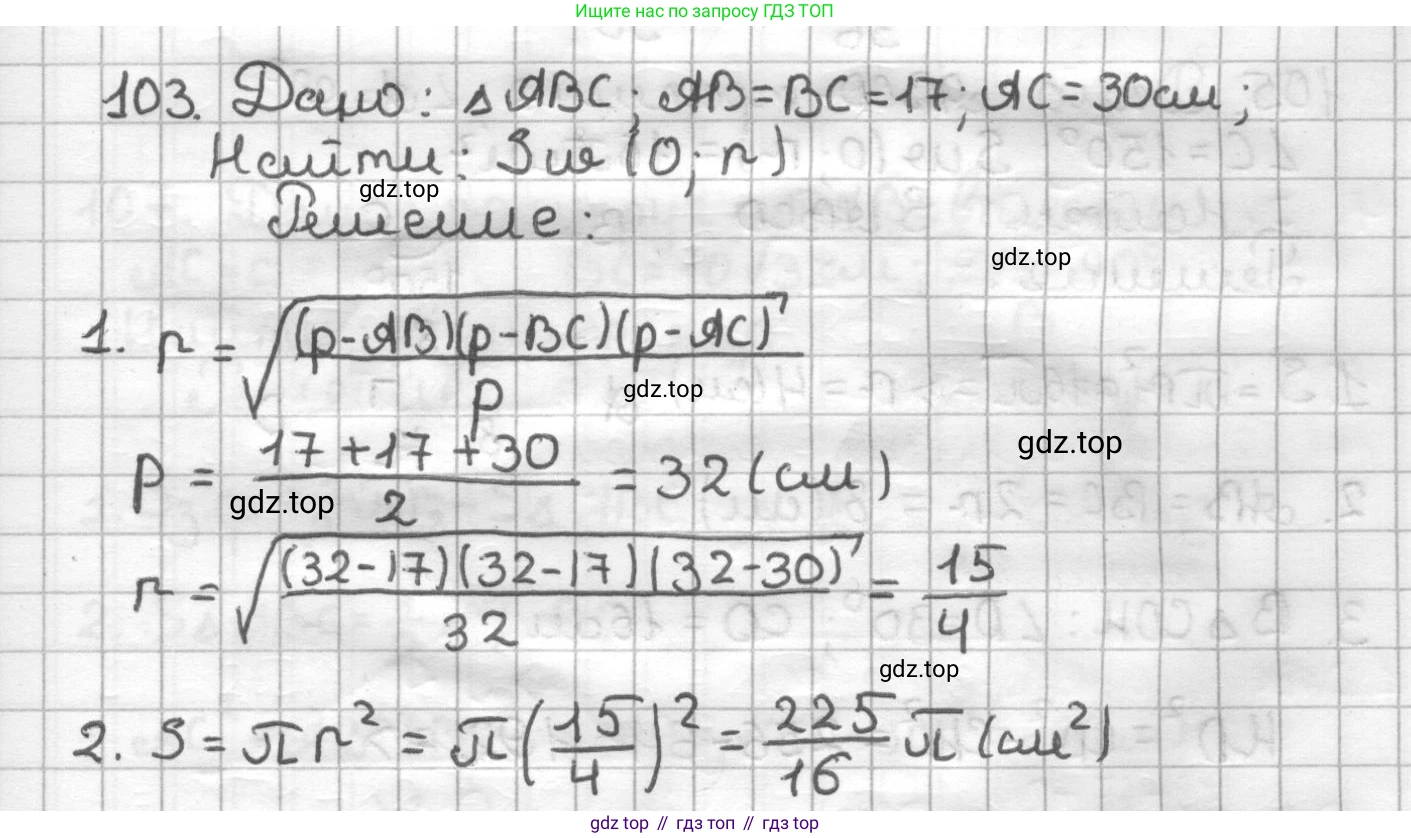 Ищите нас по запросу ГДЗ ТОП
103. Дано: △ ABC; AB = BC = 17; AC = 30см;
Найти: S ш (O; r)
gdz.top
Решение:
gdz.top
1. r = √((p-AB)(p-BC)(p-AC) / p)
gdz.top
p = (17 + 17 + 30) / 2 = 32 (см)
gdz.top
gdz.top
r = √((32-17)(32-17)(32-30) / 32) = 15/4
gdz.top
2. S = πr² = π(15/4)² = 225/16 π (см²)
gdz top // гдз топ // gdz top